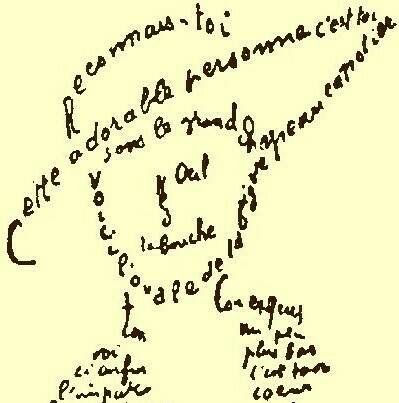 Reconnais-toi
Cette adorable personne c'est toi
sous le grand chapeau canotier
Œil
Nez
la bouche
Voici l'ovale de ta figure
ton
cou exquis
voi
ci enfin
l'imparfa
un peu
plus bas
c'est ton
coeur